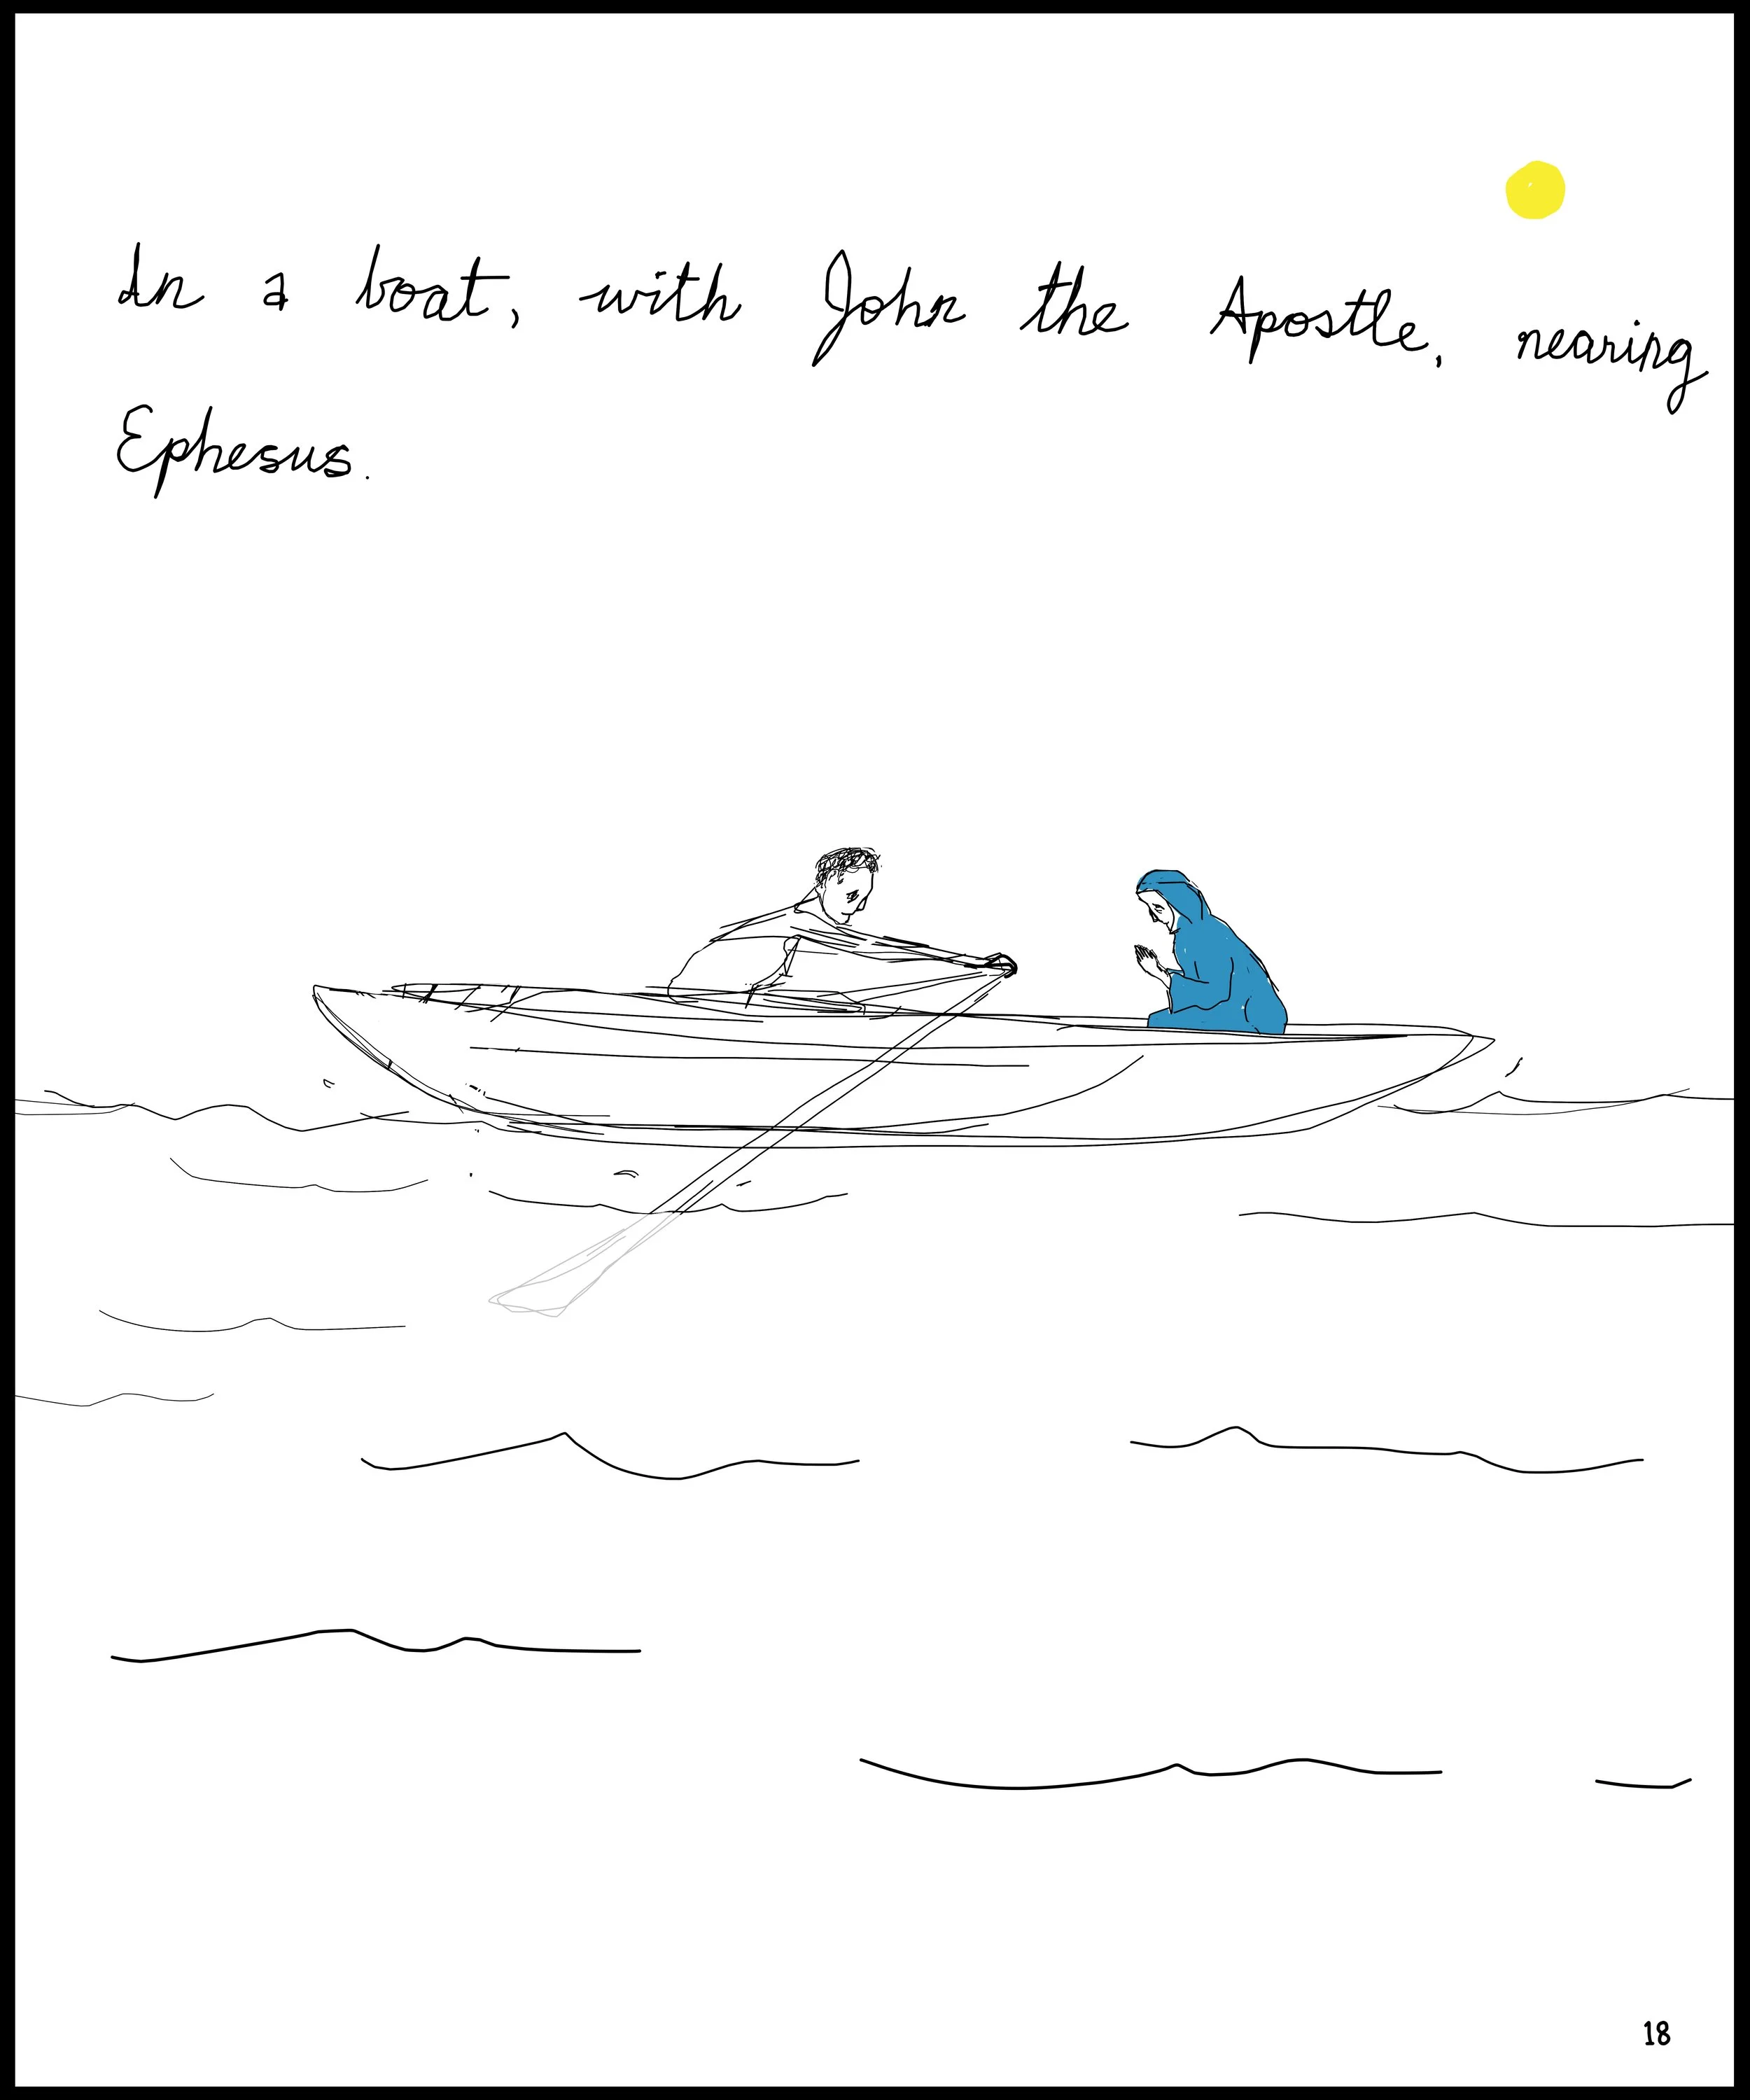 In a boat, with John the Apostle, nearing
Ephesus.
18